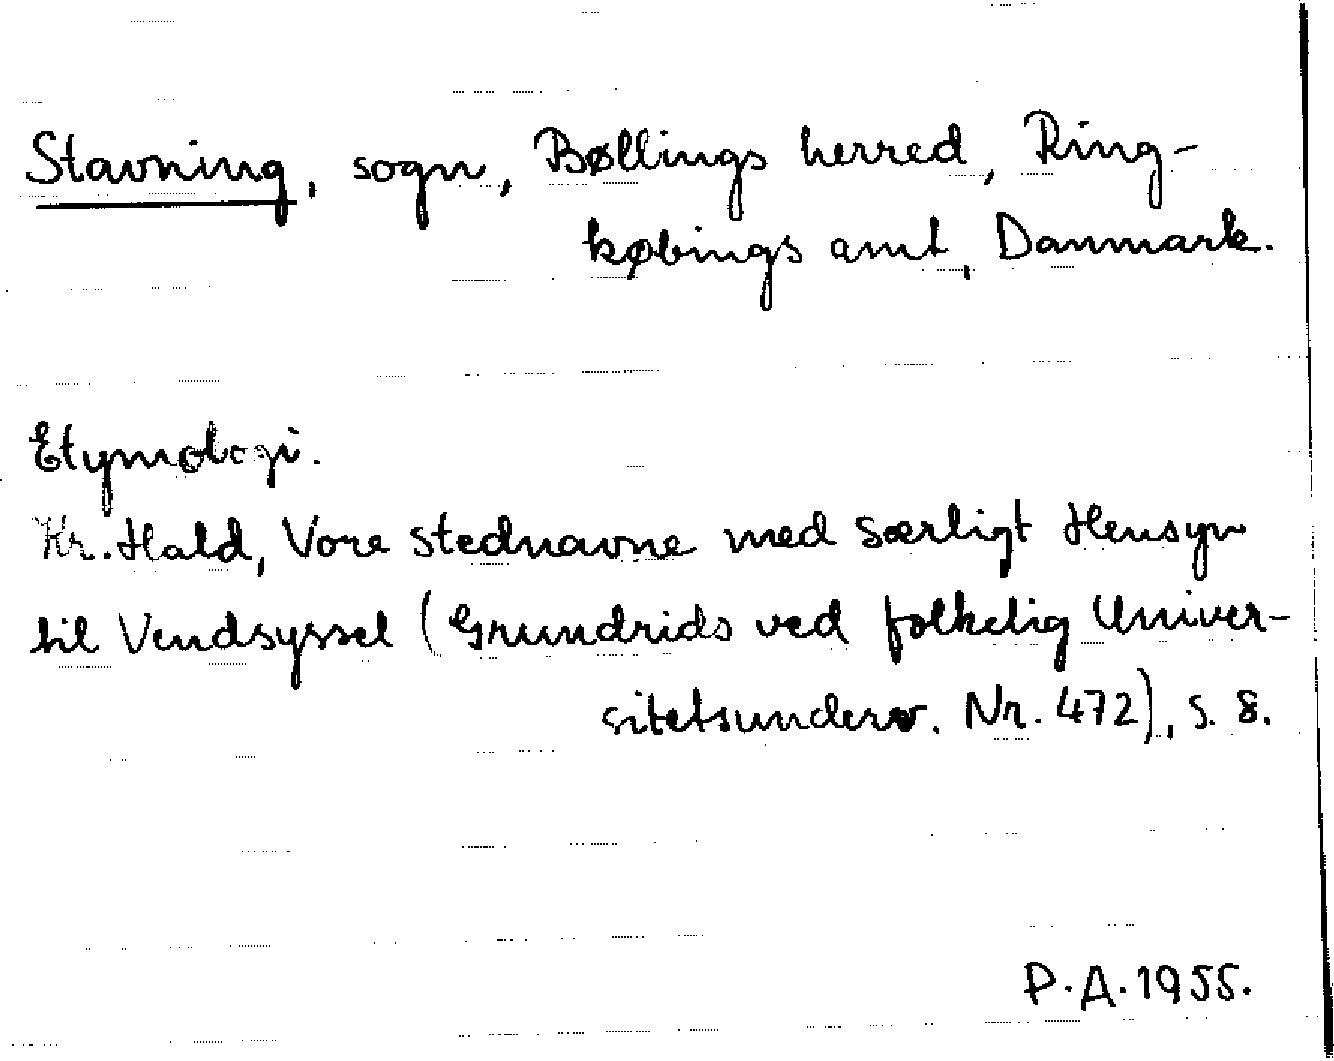 Stavning, sogn, Bøllings herred, Ring-
købings amt, Danmark.
Etymologi.
Kr. Hald, Vore stednavne med særligt Hensyn
til Vendsyssel (Grundrids ved folkelig Univer-
sitetsunderv. Nr. 472), s. 8.
P.A. 1955.